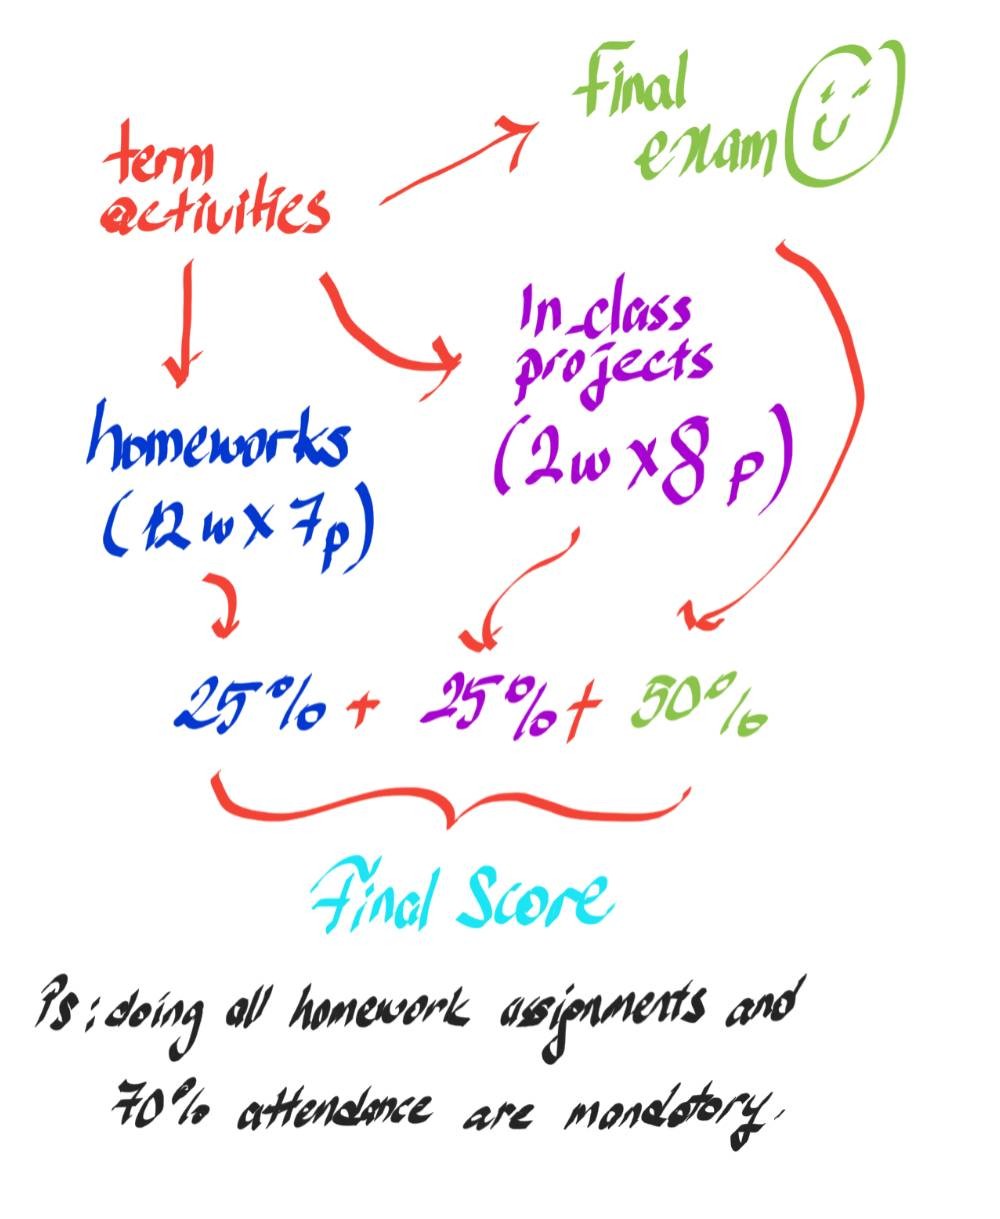 Final
exam
term
activities
In_class
projects
(2w x 8 p)
homeworks
(12 w x 7p)
25% + 25% + 50%
Final Score
Ps: doing all homework assignments and
70% attendance are mandatory.